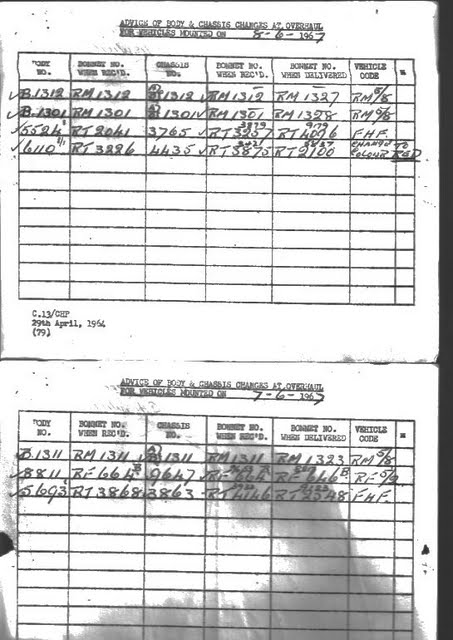 ADVICE OF BODY & CHASSIS CHANGES AT OVERHAUL
FOR VEHICLES MOUNTED ON 8-6-1967
BODY NO. BONNET NO. WHEN REC'D. CHASSIS NO. BONNET NO. WHEN REC'D. BONNET NO. WHEN DELIVERED VEHICLE CODE
B.1312 RM 1312 1312 RM 1312 RM 1327 RM 5/8
B.1301 RM 1301 1301 RM 1301 RM 1328 RM 5/8
5524 RT 2041 3765 RT 3257 RT 4096 FHF.
6110 RT 3226 4435 RT 3875 RT 2100 CHANGE TO COLOUR RED
C.13/CHP
29th April, 1964
(79)
ADVICE OF BODY & CHASSIS CHANGES AT OVERHAUL
FOR VEHICLES MOUNTED ON 7-6-1967
BODY NO. BONNET NO. WHEN REC'D. CHASSIS NO. BONNET NO. WHEN REC'D. BONNET NO. WHEN DELIVERED VEHICLE CODE
B.1311 RM 1311 1311 RM 1311 RM 1323 RM 5/8
8811 RF 664 B 9647 RF 664 RF 646 B RF 5/2
5693 RT 3868 3863 RT 4146 RT 2348 FHF.